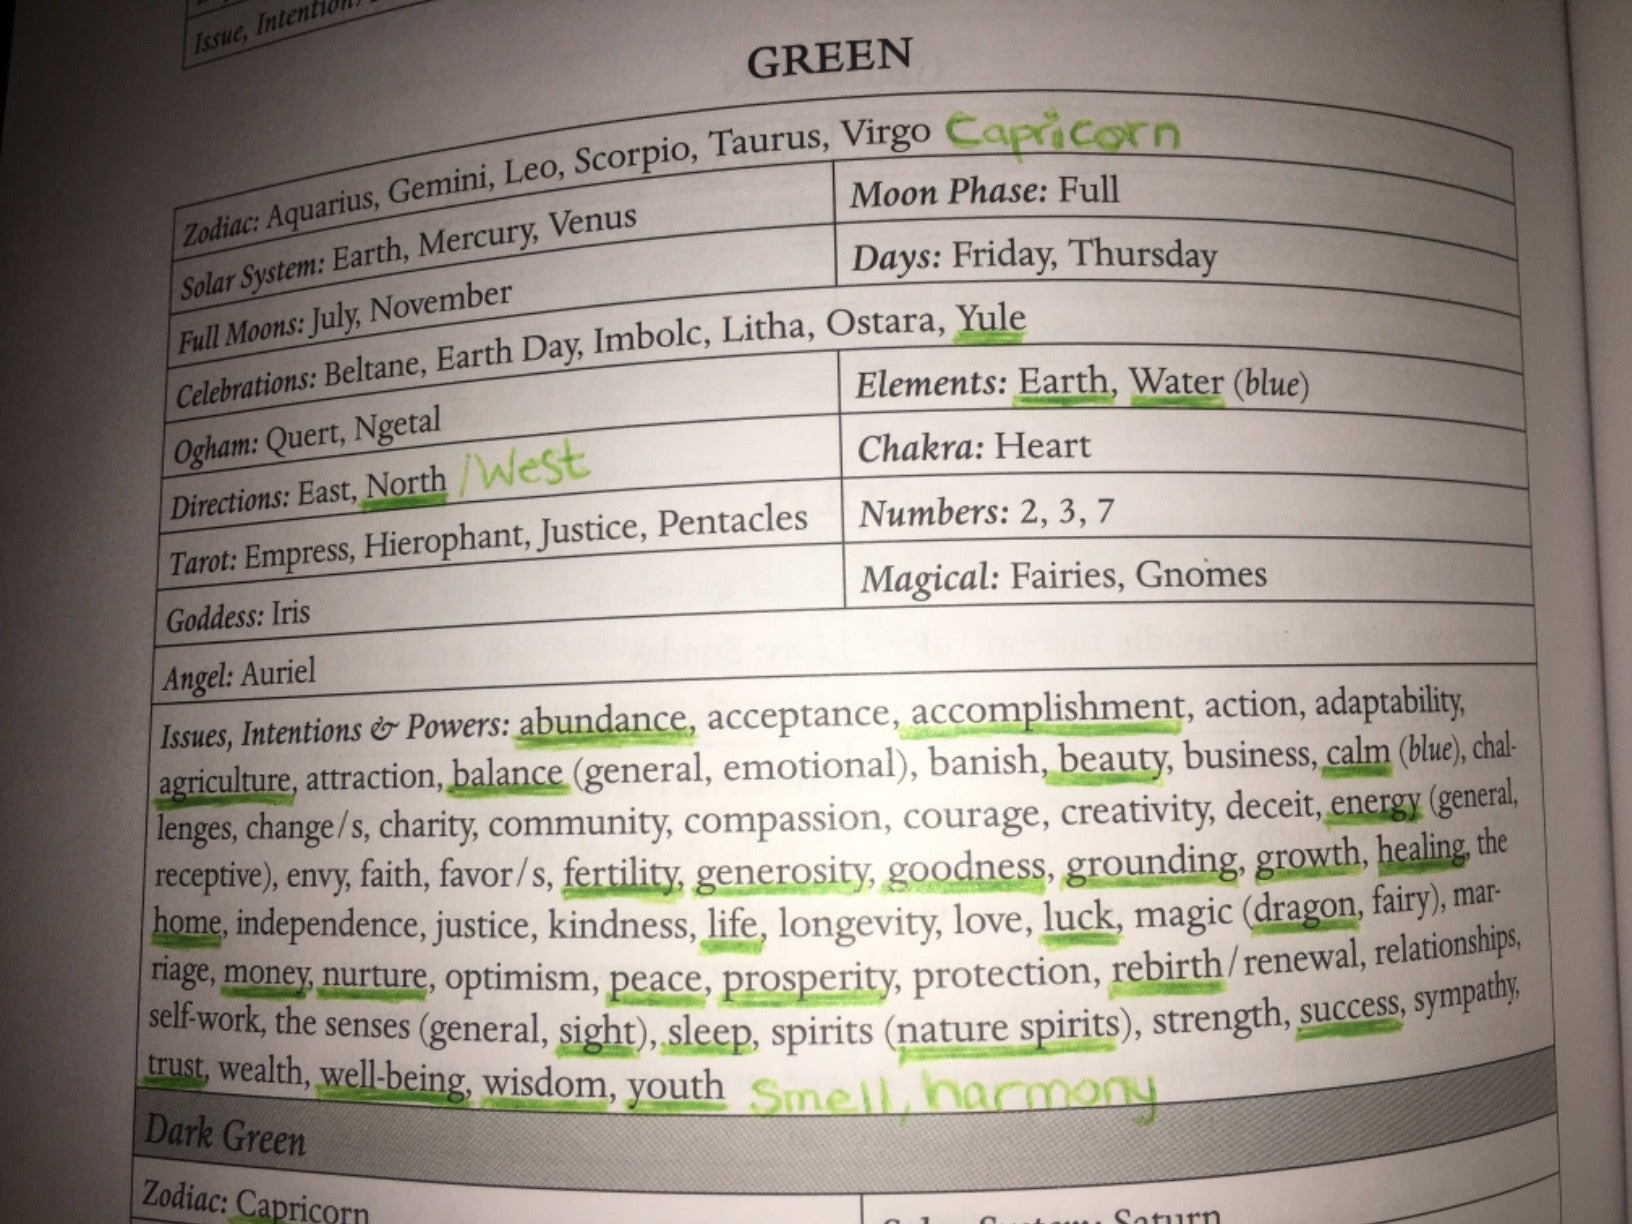 Issue, Intention
GREEN
Zodiac: Aquarius, Gemini, Leo, Scorpio, Taurus, Virgo Capricorn
Solar System: Earth, Mercury, Venus
Moon Phase: Full
Full Moons: July, November
Days: Friday, Thursday
Celebrations: Beltane, Earth Day, Imbolc, Litha, Ostara, Yule
Ogham: Quert, Ngetal
Elements: Earth, Water (blue)
Directions: East, North /West
Chakra: Heart
Tarot: Empress, Hierophant, Justice, Pentacles
Numbers: 2, 3, 7
Goddess: Iris
Magical: Fairies, Gnomes
Angel: Auriel
Issues, Intentions & Powers: abundance, acceptance, accomplishment, action, adaptability,
agriculture, attraction, balance (general, emotional), banish, beauty, business, calm (blue), chal-
lenges, change/s, charity, community, compassion, courage, creativity, deceit, energy (general,
receptive), envy, faith, favor/s, fertility, generosity, goodness, grounding, growth, healing, the
home, independence, justice, kindness, life, longevity, love, luck, magic (dragon, fairy), mar-
riage, money, nurture, optimism, peace, prosperity, protection, rebirth/renewal, relationships,
self-work, the senses (general, sight), sleep, spirits (nature spirits), strength, success, sympathy,
trust, wealth, well-being, wisdom, youth Smell, harmony
Dark Green
Zodiac: Capricorn
Saturn